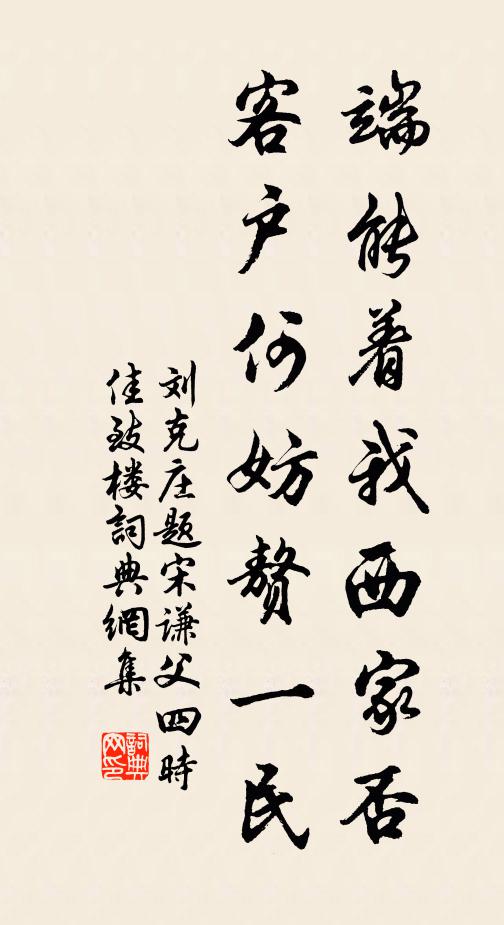 端能着我西家否
客户何妨赘一民
刘克庄题宋谦父四時
佳致楼詞典網集
詞典
网印